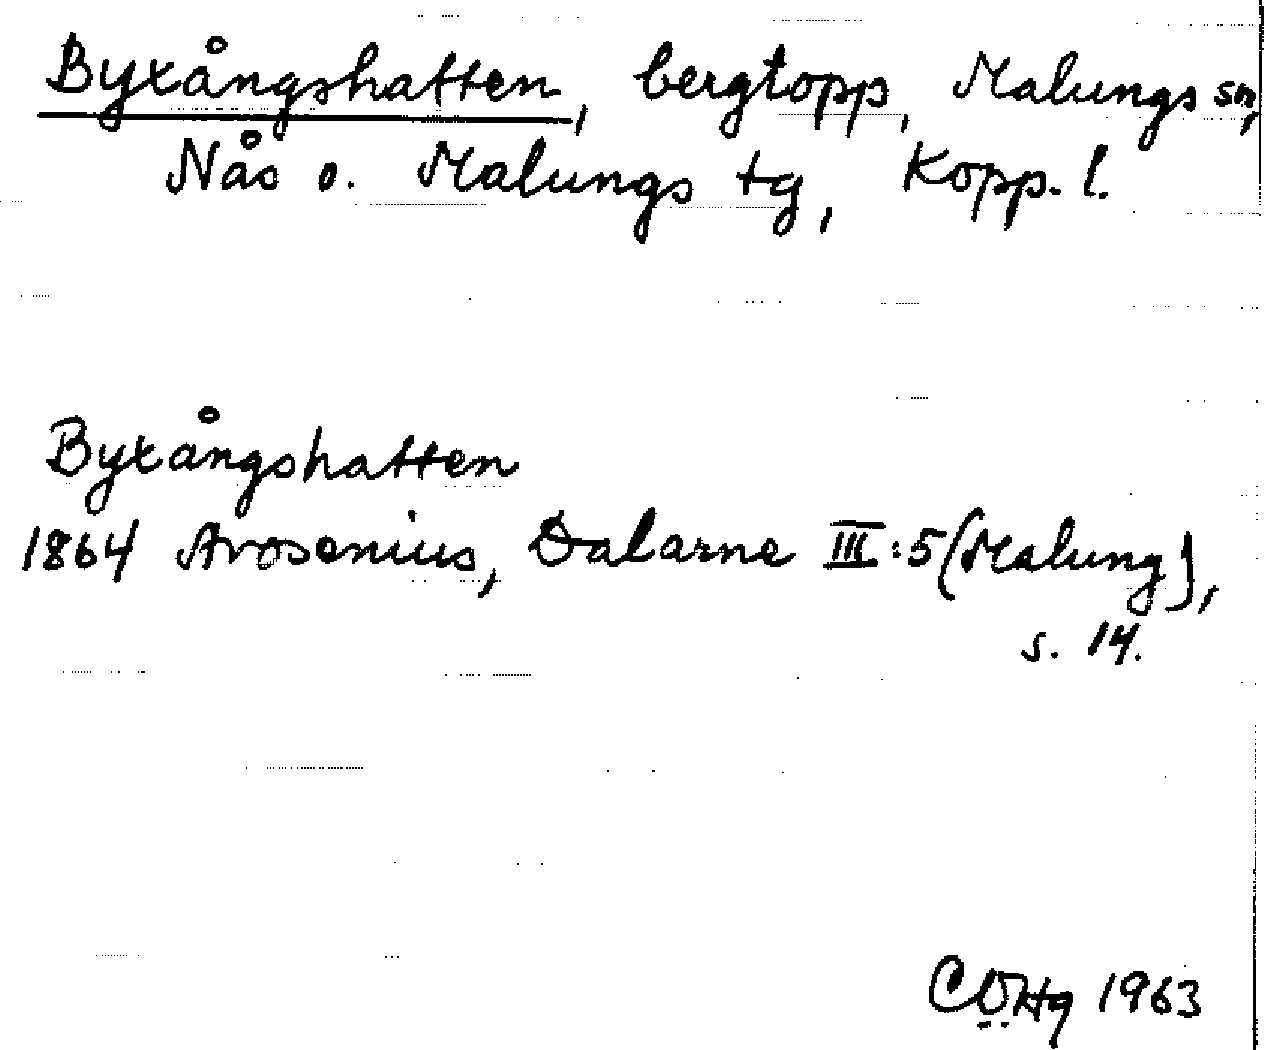 Byxångshatten, bergtopp, Malungs sn,
Nås o. Malungs tg, Kopp. l.
Byxångshatten
1864 Arosenius, Dalarne III:5 (Malung),
s. 14.
CÖHg 1963